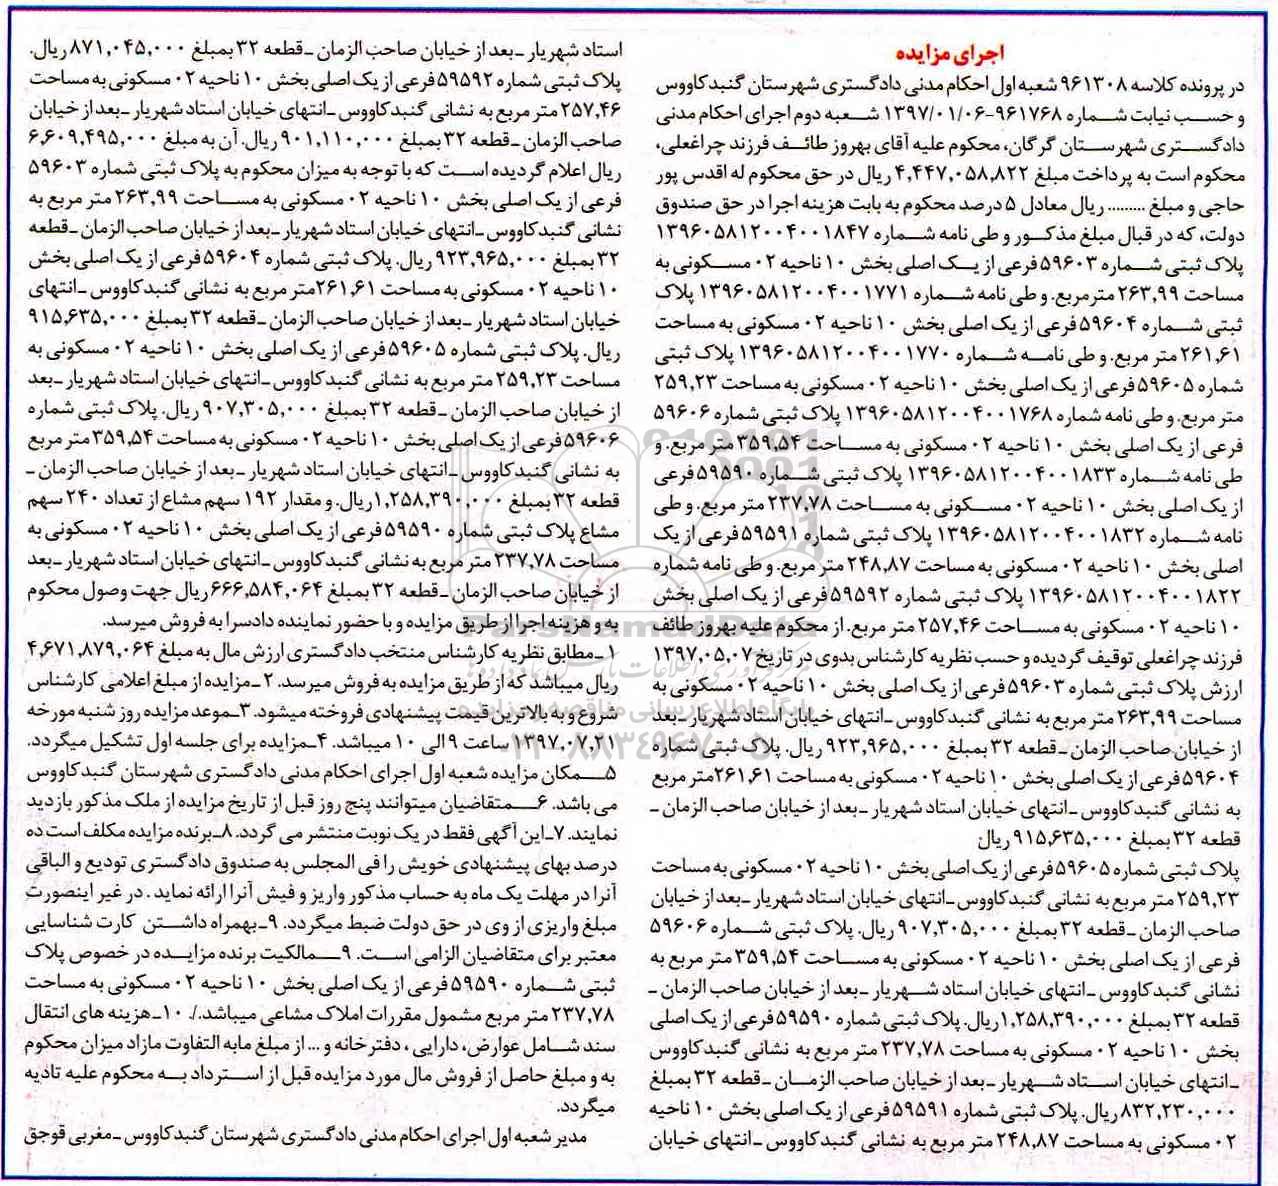 اجرای مزایده
در پرونده کلاسه ۹۶۱۳۰۸ شعبه اول احکام مدنی دادگستری شهرستان گنبدکاووس
و حسب نیابت شماره ۹۶۱۷۶۸-۱۳۹۷/۰۱/۰۶ شعبه دوم اجرای احکام مدنی
دادگستری شهرستان گرگان، محکوم علیه آقای بهروز طائف فرزند چراغعلی،
محکوم است به پرداخت مبلغ ۴,۴۴۷,۰۵۸,۸۲۲ ریال در حق محکوم له اقدس پور
حاجی و مبلغ ......... ریال معادل ۵ درصد محکوم به بابت هزینه اجرا در حق صندوق
دولت، که در قبال مبلغ مذکور و طی نامه شماره ۱۳۹۶۰۵۸۱۲۰۰۴۰۰۱۸۴۷
پلاک ثبتی شماره ۵۹۶۰۳ فرعی از یک اصلی بخش ۱۰ ناحیه ۰۲ مسکونی به
مساحت ۲۶۳,۹۹ مترمربع. و طی نامه شماره ۱۳۹۶۰۵۸۱۲۰۰۴۰۰۱۷۷۱ پلاک
ثبتی شماره ۵۹۶۰۴ فرعی از یک اصلی بخش ۱۰ ناحیه ۰۲ مسکونی به مساحت
۲۶۱,۶۱ متر مربع. و طی نامه شماره ۱۳۹۶۰۵۸۱۲۰۰۴۰۰۱۷۷۰ پلاک ثبتی
شماره ۵۹۶۰۵ فرعی از یک اصلی بخش ۱۰ ناحیه ۰۲ مسکونی به مساحت ۲۵۹,۲۳
متر مربع. و طی نامه شماره ۱۳۹۶۰۵۸۱۲۰۰۴۰۰۱۷۶۸ پلاک ثبتی شماره ۵۹۶۰۶
فرعی از یک اصلی بخش ۱۰ ناحیه ۰۲ مسکونی به مساحت ۳۵۹,۵۴ متر مربع. و
طی نامه شماره ۱۳۹۶۰۵۸۱۲۰۰۴۰۰۱۸۳۳ پلاک ثبتی شماره ۵۹۵۹۰ فرعی
از یک اصلی بخش ۱۰ ناحیه ۰۲ مسکونی به مساحت ۲۳۷,۷۸ متر مربع. و طی
نامه شماره ۱۳۹۶۰۵۸۱۲۰۰۴۰۰۱۸۳۲ پلاک ثبتی شماره ۵۹۵۹۱ فرعی از یک
اصلی بخش ۱۰ ناحیه ۰۲ مسکونی به مساحت ۲۴۸,۸۷ متر مربع. و طی نامه شماره
۱۳۹۶۰۵۸۱۲۰۰۴۰۰۱۸۲۲ پلاک ثبتی شماره ۵۹۵۹۲ فرعی از یک اصلی بخش
۱۰ ناحیه ۰۲ مسکونی به مساحت ۲۵۷,۴۶ متر مربع. از محکوم علیه بهروز طائف
فرزند چراغعلی توقیف گردیده و حسب نظریه کارشناس بدوی در تاریخ ۱۳۹۷,۰۵,۰۷
ارزش پلاک ثبتی شماره ۵۹۶۰۳ فرعی از یک اصلی بخش ۱۰ ناحیه ۰۲ مسکونی به
مساحت ۲۶۳,۹۹ متر مربع به نشانی گنبدکاووس ـ انتهای خیابان استاد شهریار ـ بعد
از خیابان صاحب الزمان ـ قطعه ۳۲ بمبلغ ۹۲۳,۹۶۵,۰۰۰ ریال. پلاک ثبتی شماره
۵۹۶۰۴ فرعی از یک اصلی بخش ۱۰ ناحیه ۰۲ مسکونی به مساحت ۲۶۱,۶۱ متر مربع
به نشانی گنبدکاووس ـ انتهای خیابان استاد شهریار ـ بعد از خیابان صاحب الزمان ـ
قطعه ۳۲ بمبلغ ۹۱۵,۶۳۵,۰۰۰ ریال
پلاک ثبتی شماره ۵۹۶۰۵ فرعی از یک اصلی بخش ۱۰ ناحیه ۰۲ مسکونی به مساحت
۲۵۹,۲۳ متر مربع به نشانی گنبدکاووس ـ انتهای خیابان استاد شهریار ـ بعد از خیابان
صاحب الزمان ـ قطعه ۳۲ بمبلغ ۹۰۷,۳۰۵,۰۰۰ ریال. پلاک ثبتی شماره ۵۹۶۰۶
فرعی از یک اصلی بخش ۱۰ ناحیه ۰۲ مسکونی به مساحت ۳۵۹,۵۴ متر مربع به
نشانی گنبدکاووس ـ انتهای خیابان استاد شهریار ـ بعد از خیابان صاحب الزمان ـ
قطعه ۳۲ بمبلغ ۱,۲۵۸,۳۹۰,۰۰۰ ریال. پلاک ثبتی شماره ۵۹۵۹۰ فرعی از یک اصلی
بخش ۱۰ ناحیه ۰۲ مسکونی به مساحت ۲۳۷,۷۸ متر مربع به نشانی گنبدکاووس
ـ انتهای خیابان استاد شهریار ـ بعد از خیابان صاحب الزمان ـ قطعه ۳۲ بمبلغ
۸۳۲,۲۳۰,۰۰۰ ریال. پلاک ثبتی شماره ۵۹۵۹۱ فرعی از یک اصلی بخش ۱۰ ناحیه
۰۲ مسکونی به مساحت ۲۴۸,۸۷ متر مربع به نشانی گنبدکاووس ـ انتهای خیابان
استاد شهریار ـ بعد از خیابان صاحب الزمان ـ قطعه ۳۲ بمبلغ ۸۷۱,۰۴۵,۰۰۰ ریال.
پلاک ثبتی شماره ۵۹۵۹۲ فرعی از یک اصلی بخش ۱۰ ناحیه ۰۲ مسکونی به مساحت
۲۵۷,۴۶ متر مربع به نشانی گنبدکاووس ـ انتهای خیابان استاد شهریار ـ بعد از خیابان
صاحب الزمان ـ قطعه ۳۲ بمبلغ ۹۰۱,۱۱۰,۰۰۰ ریال. آن به مبلغ ۶,۶۰۹,۴۹۵,۰۰۰
ریال اعلام گردیده است که با توجه به میزان محکوم به پلاک ثبتی شماره ۵۹۶۰۳
فرعی از یک اصلی بخش ۱۰ ناحیه ۰۲ مسکونی به مساحت ۲۶۳,۹۹ متر مربع به
نشانی گنبدکاووس ـ انتهای خیابان استاد شهریار ـ بعد از خیابان صاحب الزمان ـ قطعه
۳۲ بمبلغ ۹۲۳,۹۶۵,۰۰۰ ریال. پلاک ثبتی شماره ۵۹۶۰۴ فرعی از یک اصلی بخش
۱۰ ناحیه ۰۲ مسکونی به مساحت ۲۶۱,۶۱ متر مربع به نشانی گنبدکاووس ـ انتهای
خیابان استاد شهریار ـ بعد از خیابان صاحب الزمان ـ قطعه ۳۲ بمبلغ ۹۱۵,۶۳۵,۰۰۰
ریال. پلاک ثبتی شماره ۵۹۶۰۵ فرعی از یک اصلی بخش ۱۰ ناحیه ۰۲ مسکونی به
مساحت ۲۵۹,۲۳ متر مربع به نشانی گنبدکاووس ـ انتهای خیابان استاد شهریار ـ بعد
از خیابان صاحب الزمان ـ قطعه ۳۲ بمبلغ ۹۰۷,۳۰۵,۰۰۰ ریال. پلاک ثبتی شماره
۵۹۶۰۶ فرعی از یک اصلی بخش ۱۰ ناحیه ۰۲ مسکونی به مساحت ۳۵۹,۵۴ متر مربع
به نشانی گنبدکاووس ـ انتهای خیابان استاد شهریار ـ بعد از خیابان صاحب الزمان ـ
قطعه ۳۲ بمبلغ ۱,۲۵۸,۳۹۰,۰۰۰ ریال. و مقدار ۱۹۲ سهم مشاع از تعداد ۲۴۰ سهم
مشاع پلاک ثبتی شماره ۵۹۵۹۰ فرعی از یک اصلی بخش ۱۰ ناحیه ۰۲ مسکونی به
مساحت ۲۳۷,۷۸ متر مربع به نشانی گنبدکاووس ـ انتهای خیابان استاد شهریار ـ بعد
از خیابان صاحب الزمان ـ قطعه ۳۲ بمبلغ ۶۶۶,۵۸۴,۰۶۴ ریال جهت وصول محکوم
به و هزینه اجرا از طریق مزایده و با حضور نماینده دادسرا به فروش میرسد.
۱ـ مطابق نظریه کارشناس منتخب دادگستری ارزش مال به مبلغ ۴,۶۷۱,۸۷۹,۰۶۴
ریال میباشد که از طریق مزایده به فروش میرسد. ۲ـ مزایده از مبلغ اعلامی کارشناس
شروع و به بالاترین قیمت پیشنهادی فروخته میشود. ۳ـ موعد مزایده روز شنبه مورخه
۱۳۹۷,۰۷,۲۱ ساعت ۹ الی ۱۰ میباشد. ۴ـ مزایده برای جلسه اول تشکیل میگردد.
۵ـ مکان مزایده شعبه اول اجرای احکام مدنی دادگستری شهرستان گنبدکاووس
می باشد. ۶ـ متقاضیان میتوانند پنج روز قبل از تاریخ مزایده از ملک مذکور بازدید
نمایند. ۷ـ این آگهی فقط در یک نوبت منتشر می گردد. ۸ـ برنده مزایده مکلف است ده
درصد بهای پیشنهادی خویش را فی المجلس به صندوق دادگستری تودیع و الباقی
آنرا در مهلت یک ماه به حساب مذکور واریز و فیش آنرا ارائه نماید. در غیر اینصورت
مبلغ واریزی از وی در حق دولت ضبط میگردد. ۹ـ بهمراه داشتن کارت شناسایی
معتبر برای متقاضیان الزامی است. ۹ـ مالکیت برنده مزایده در خصوص پلاک
ثبتی شماره ۵۹۵۹۰ فرعی از یک اصلی بخش ۱۰ ناحیه ۰۲ مسکونی به مساحت
۲۳۷,۷۸ متر مربع مشمول مقررات املاک مشاعی میباشد./. ۱۰ـ هزینه های انتقال
سند شامل عوارض، دارایی، دفترخانه و ... از مبلغ مابه التفاوت مازاد میزان محکوم
به و مبلغ حاصل از فروش مال مورد مزایده قبل از استرداد به محکوم علیه تادیه
میگردد.
مدیر شعبه اول اجرای احکام مدنی دادگستری شهرستان گنبدکاووس ـ مغربی قوجق
ParsNamadData
پایگاه اطلاع رسانی مناقصه و مزایده